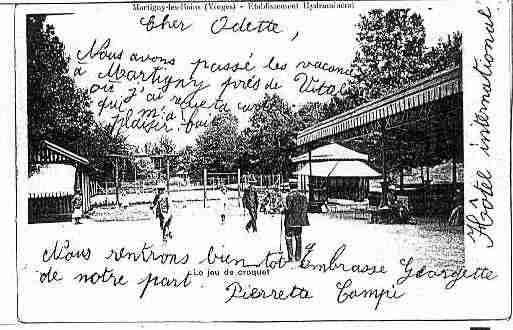 Martigny-les-Bains (Vosges) - Etablissement Hydrominéral
Cher Odette,
Nous avons passé les vacanc
à Martigny près de Vittel
où j'ai la cure
qui m'a
plaisir.
Hôtel international
Nous rentrons bientot Embrasse Georgette
de notre part.
Le jeu de croquet
Pierrette Campi